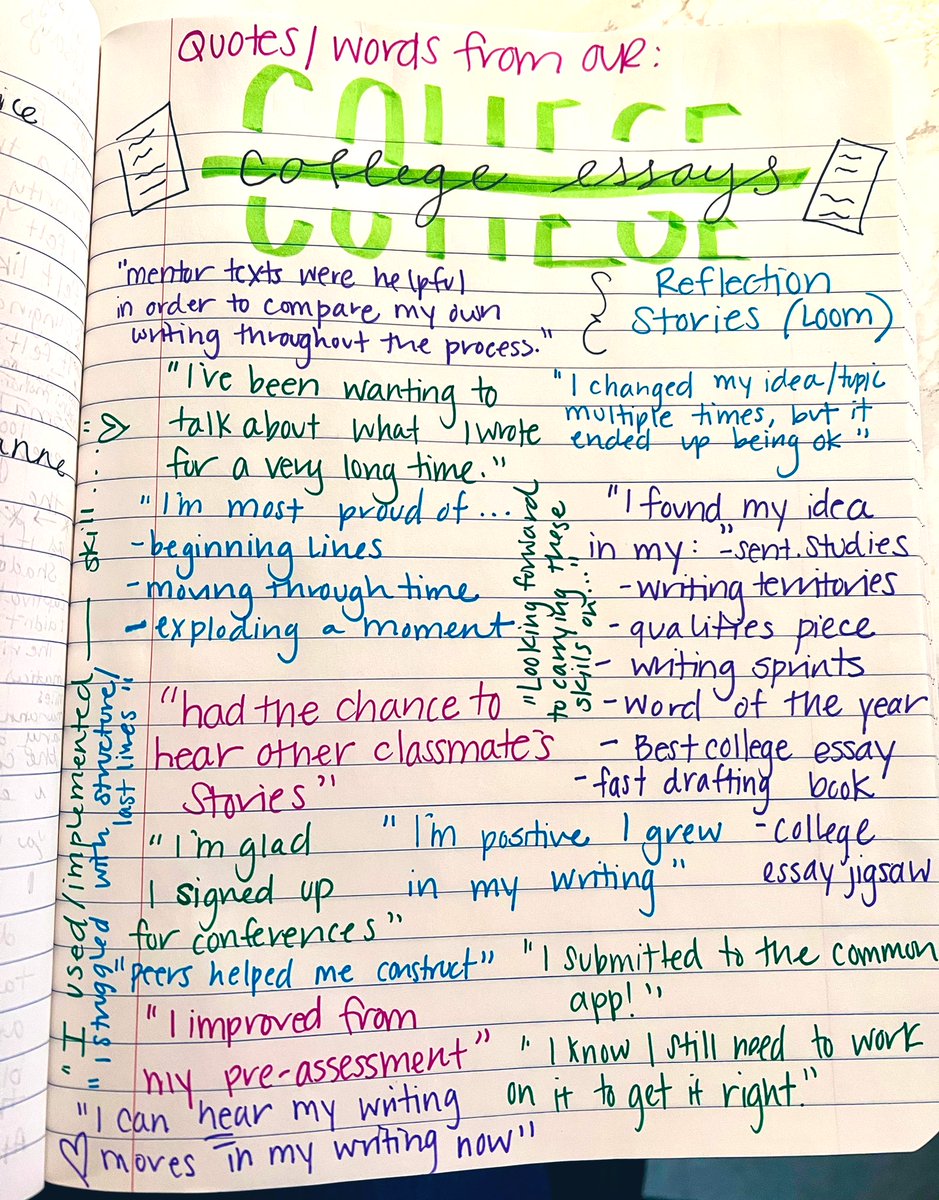 Quotes/words from our:
COLLEGE
college essays
"mentor texts were helpful
in order to compare my own
writing throughout the process."
Reflection
Stories (Loom)
"I've been wanting to
talk about what I wrote
for a very long time."
"I changed my idea/topic
multiple times, but it
ended up being ok"
"I'm most proud of...
-beginning lines
-moving through time
-exploding a moment
"Looking forward
to carrying these
skills on..."
"I found my idea
in my:"-sent. studies
-writing territories
-qualities piece
- writing sprints
-word of the year
- Best college essay
book
-fast drafting
-college
essay jigsaw
"had the chance to
hear other classmate's
stories"
"I'm glad
I signed up
for conferences"
"I'm positive I grew
in my writing"
"peers helped me construct"
"I submitted to the common
app!"
"I improved from
my pre-assessment"
"I know I still need to work
on it to get it right."
"I can hear my writing
moves in my writing now"
"I used/implemented ____ skill....."
"I struggled with structure/
last lines"
ice
anne